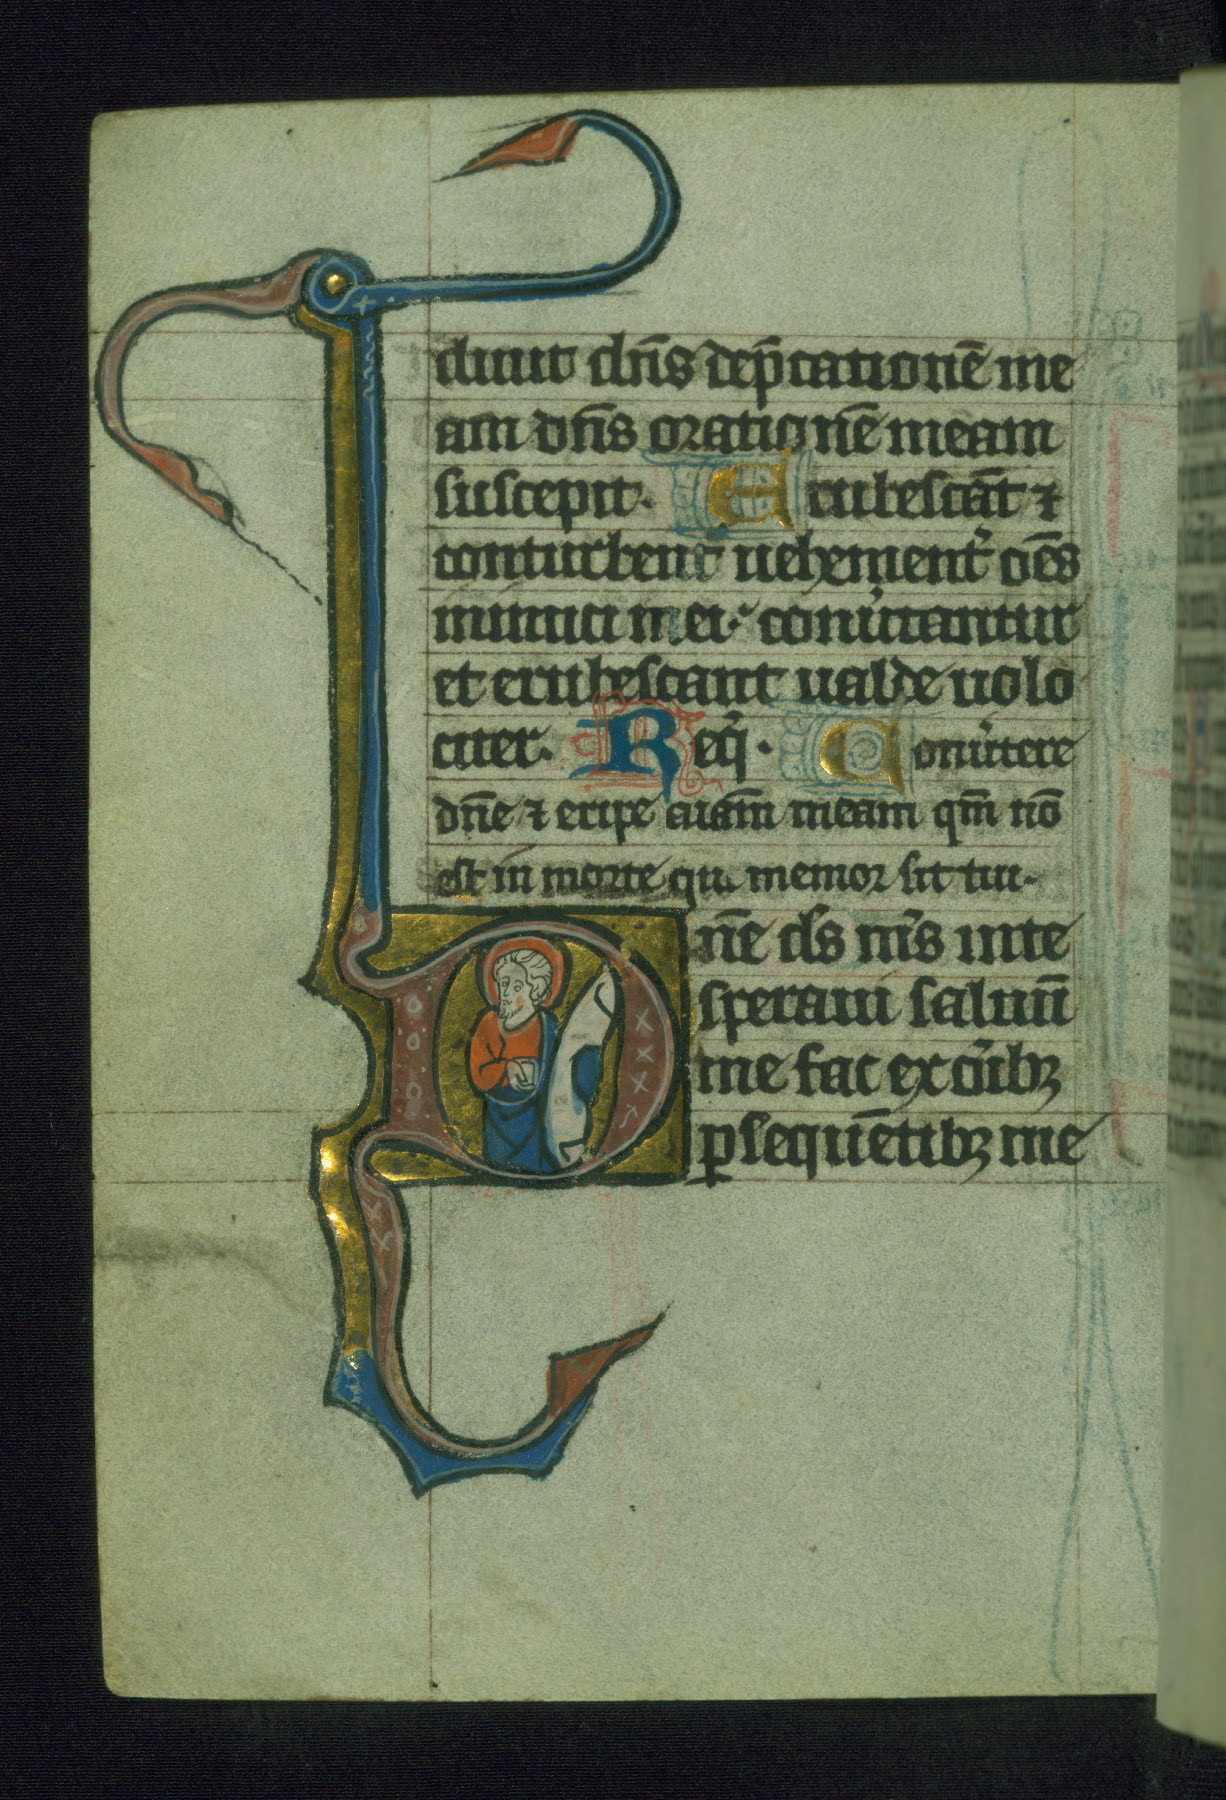 diuit dñs dep̃cationẽ me
am dñs orationẽ meam
suscepit. Erubescãt ⁊
conturbent uehement̾ oẽs
inimici mei. conũtantur
et erubescant ualde uelo
citer. Req̃. Conũtere
dñe ⁊ eripe aĩam meam qm̃ nõ
est in morte qui memor sit tui.
Dñe ds mĩs in te
speraui saluũ
me fac ex oĩbꝫ
ꝑsequẽtibꝫ me